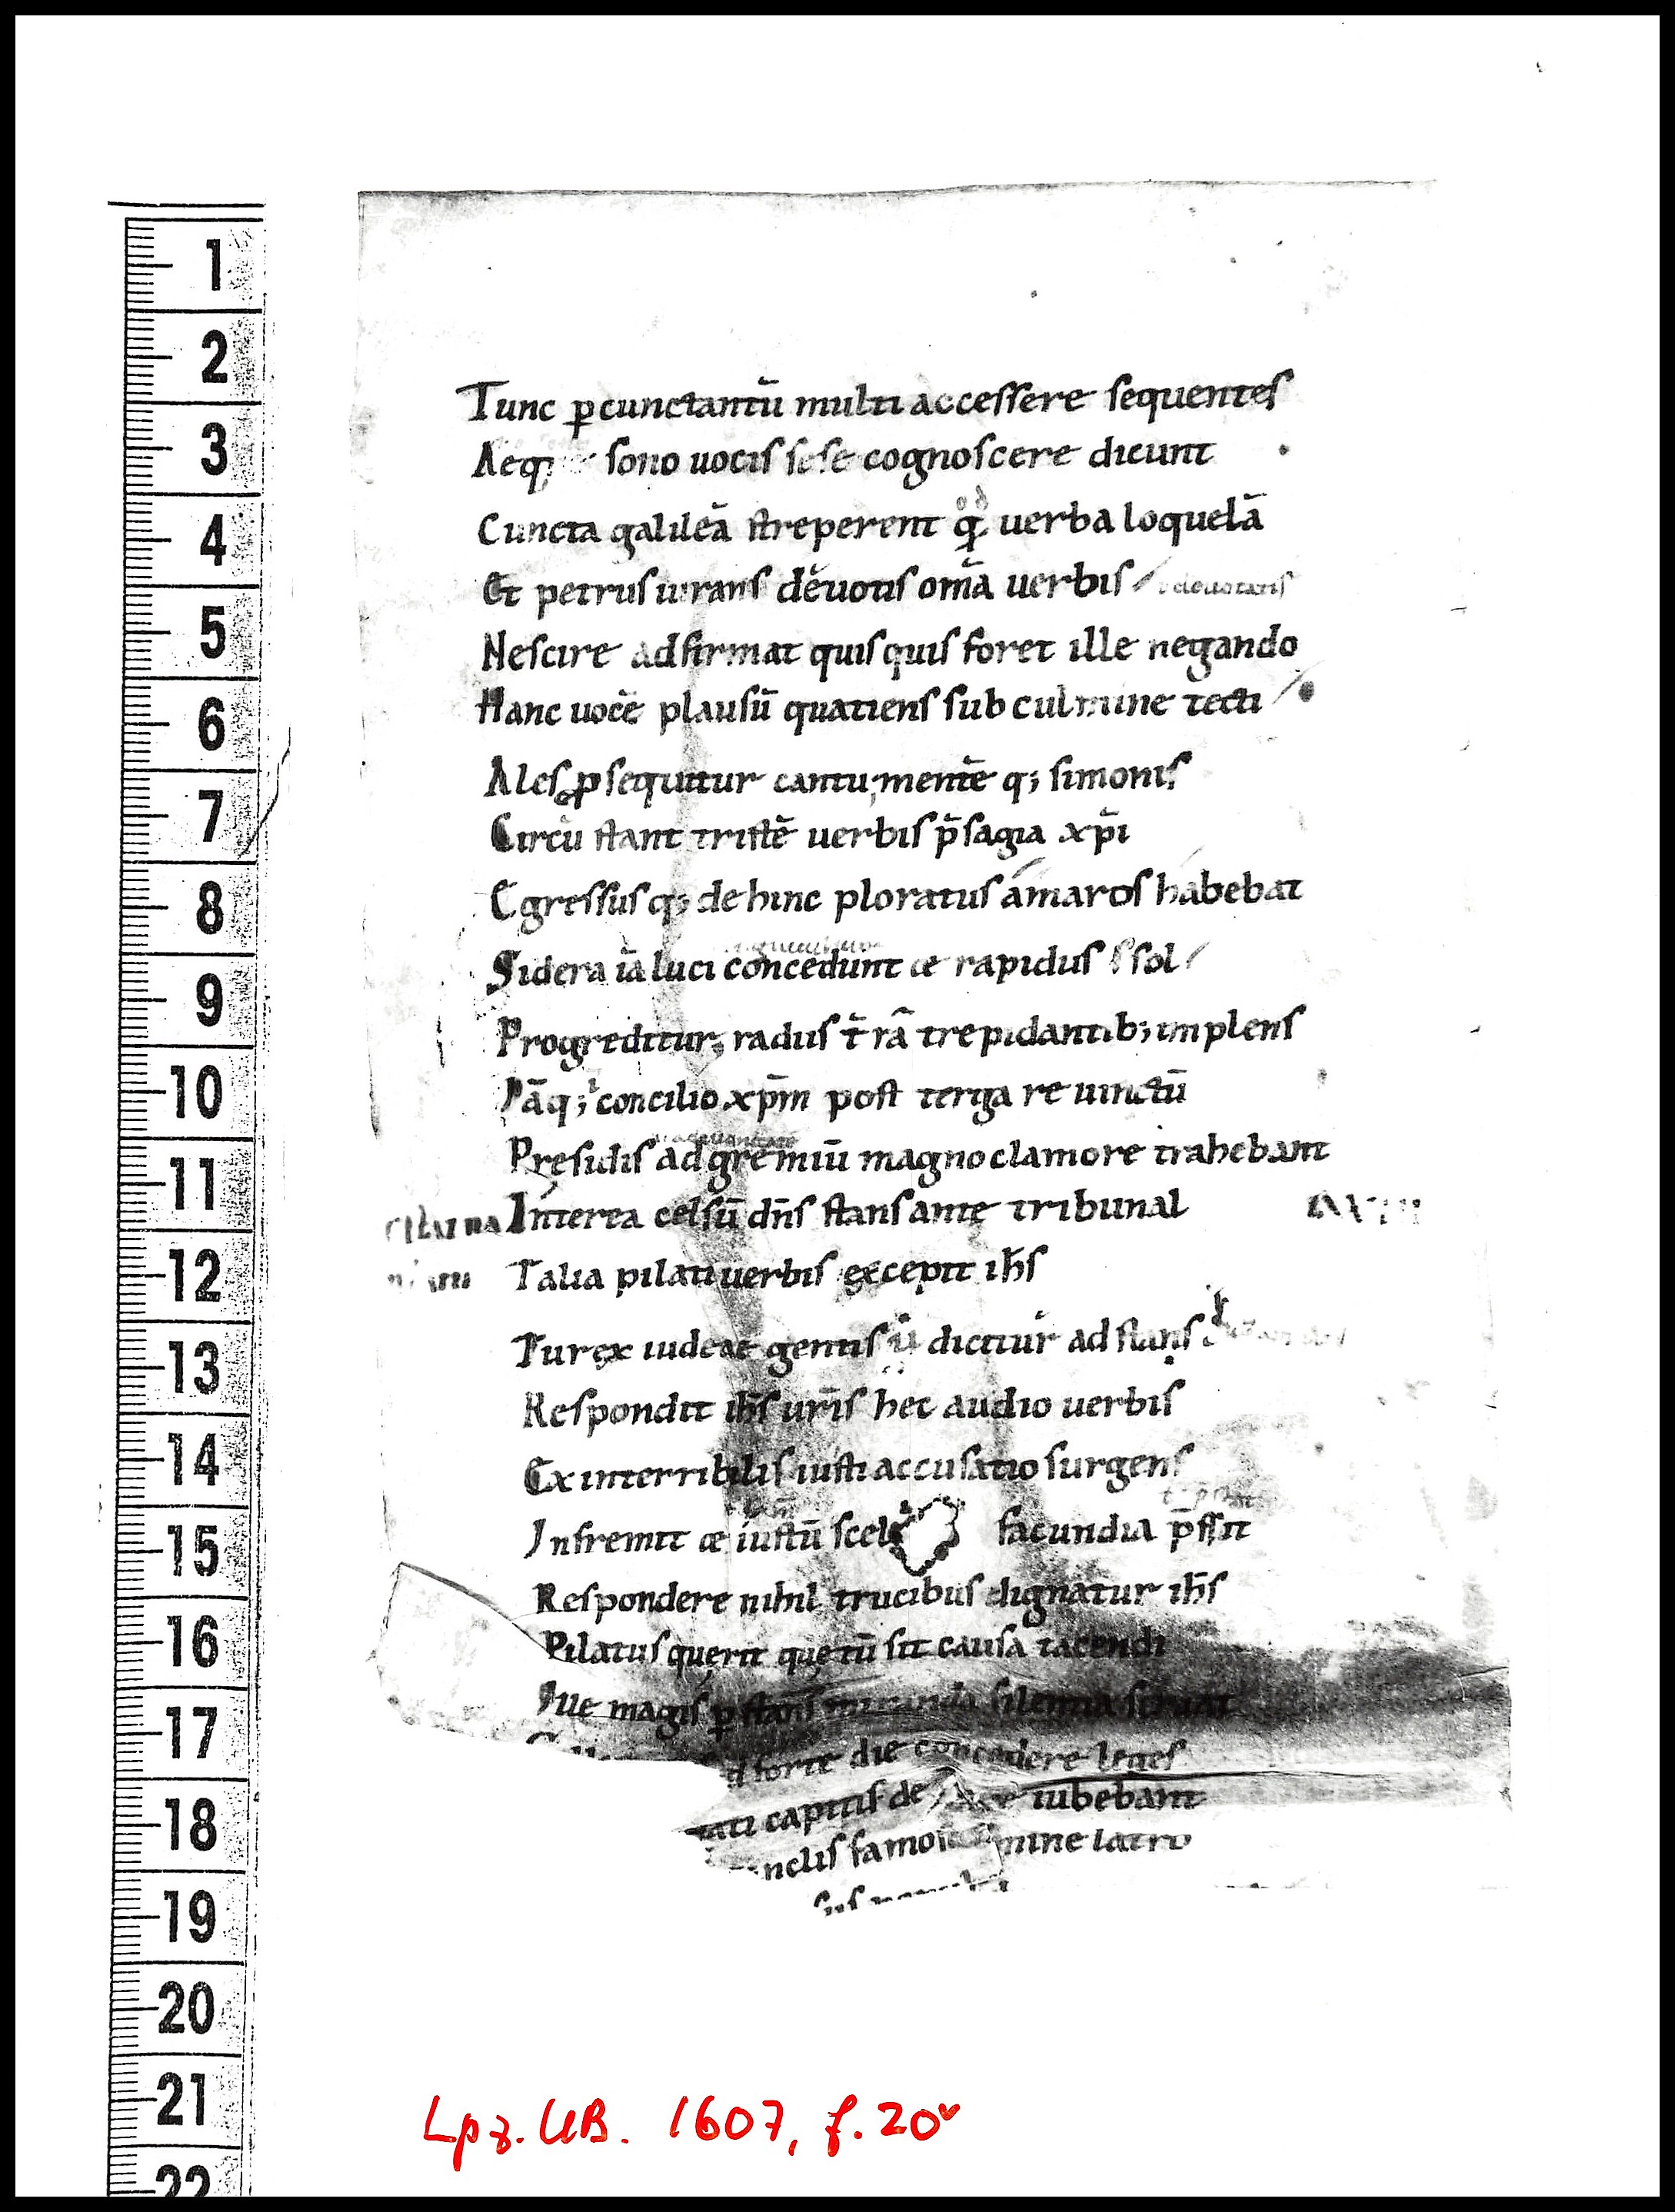 1
2
3
4
5
6
7
8
9
10
11
12
13
14
15
16
17
18
19
20
21
22
Tunc p̱cunctantū multi accessere sequentes
Aeq; sono uocis sese cognoscere dicunt
Cuncta galileā streperent qđ uerba loquelā
Et petrus iurans deuotis om̄a uerbis / deuotatis
Nescire adfirmat quisquis foret ille negando
Hanc uocē plausū quatiens sub culmine tecti
Ales ꝓsequitur cantu, mentē q; simonis
Circū stant tristē uerbis p̄sagia xp̄i
Egressus q; dehinc ploratus amaros habebat
Sidera iā luci concedunt & rapidus sol
Progreditur, radiis t̄rā trepidantib; implens
Iāq; concilio xp̄m post terga reuinctū
Pręsidis ad gremiū magno clamore trahebant
Interea celsū dn̄s stans ante tribunal
Talia pilati uerbis excepit ih̄s
Tu rex iudeae gentis dicitur adstans
Respondit ih̄s ur̄is hec audio uerbis
Ex interribilis iusti accusatio surgens
Infremit & iustū scel facundia p̄ssit
Respondere nihil trucibus dignatur ih̄s
Pilatus querit quę tū sit causa tacendi
Ille magis p̱stans miranda silentia seruat
d forte die concedere leges
ati capitis de iubebant
nclis famo mine latro
Lpz. UB. 1607, f. 20ᵛ